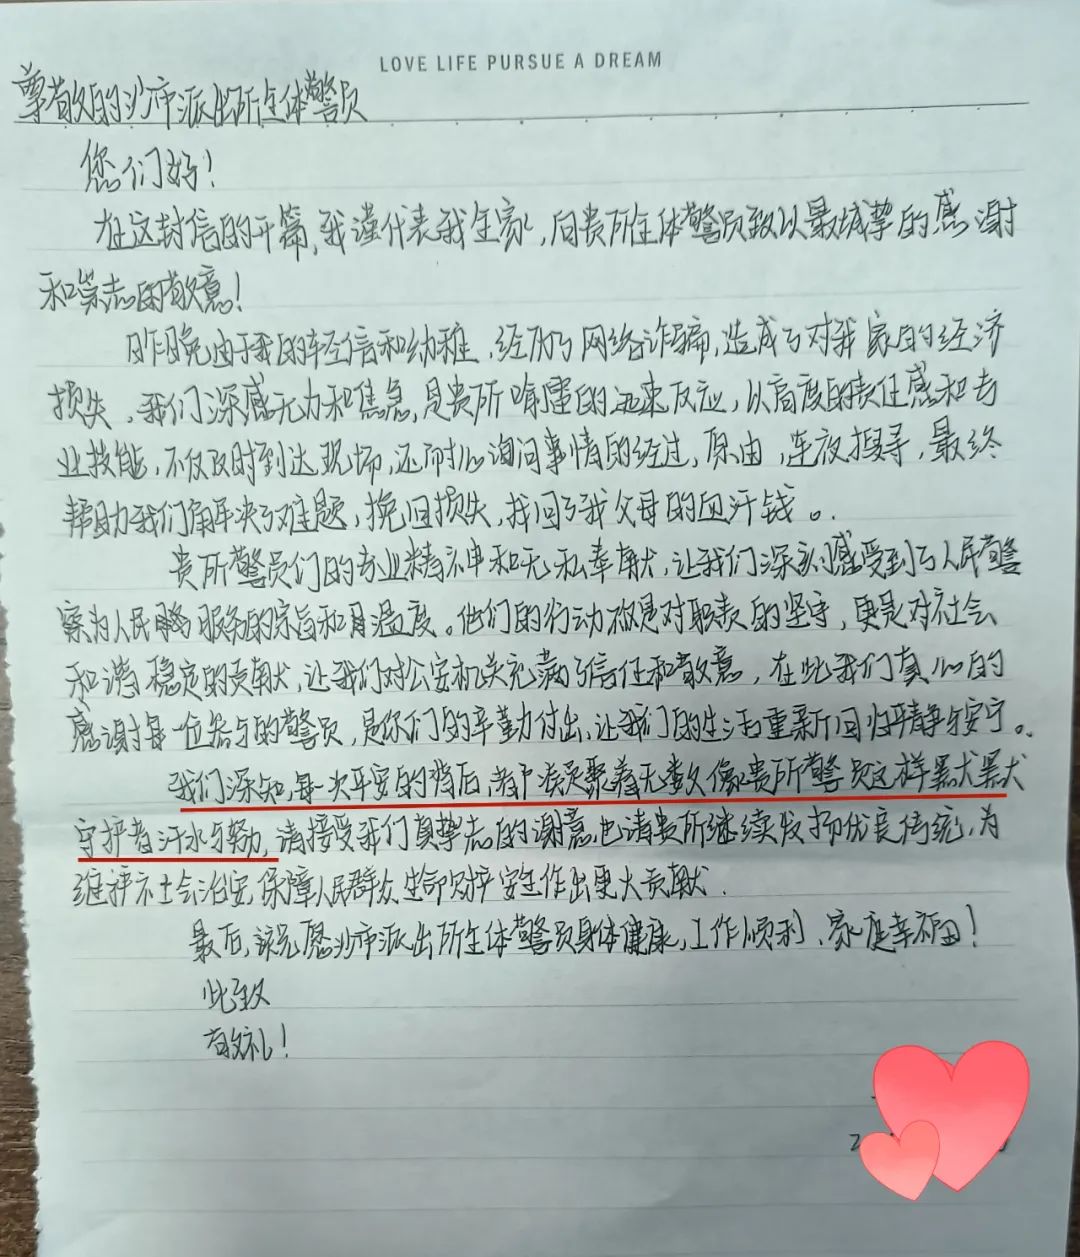 LOVE LIFE PURSUE A DREAM
尊敬的沙市派出所全体警员
您们好！
在这封信的开篇，我谨代表我全家，向贵所全体警员致以最诚挚的感谢
和崇高的敬意！
昨晚由于我的轻信和幼稚，经历了网络诈骗，造成了对我家的经济
损失，我们深感无力和焦急，是贵所 的迅速反应，以高度的责任感和专
业技能，不仅及时到达现场，还耐心询问事情的经过，原由，连夜搜寻，最终
帮助我们解决了难题，挽回损失，找回了我父母的血汗钱。
贵所警员们的专业精神和无私奉献，让我们深刻感受到了人民警
察为人民服务的宗旨和 温度。他们的行动不仅是对职责的坚守，更是对社会
和谐稳定的贡献，让我们对公安机关充满了信任和敬意，在此我们真心的
感谢每一位参与的警员，是你们的辛勤付出，让我们的生活重新回归平静与安宁。
我们深知，每一次平安的背后，都凝聚着无数像贵所警员这样默默
守护者汗水与努力，请接受我们真挚 的谢意，也请贵所继续发扬优良传统，为
维护社会治安，保障人民群众生命财产安全作出更大贡献.
最后，祝愿沙市派出所全体警员身体健康，工作顺利、家庭幸福！
此致
敬礼！